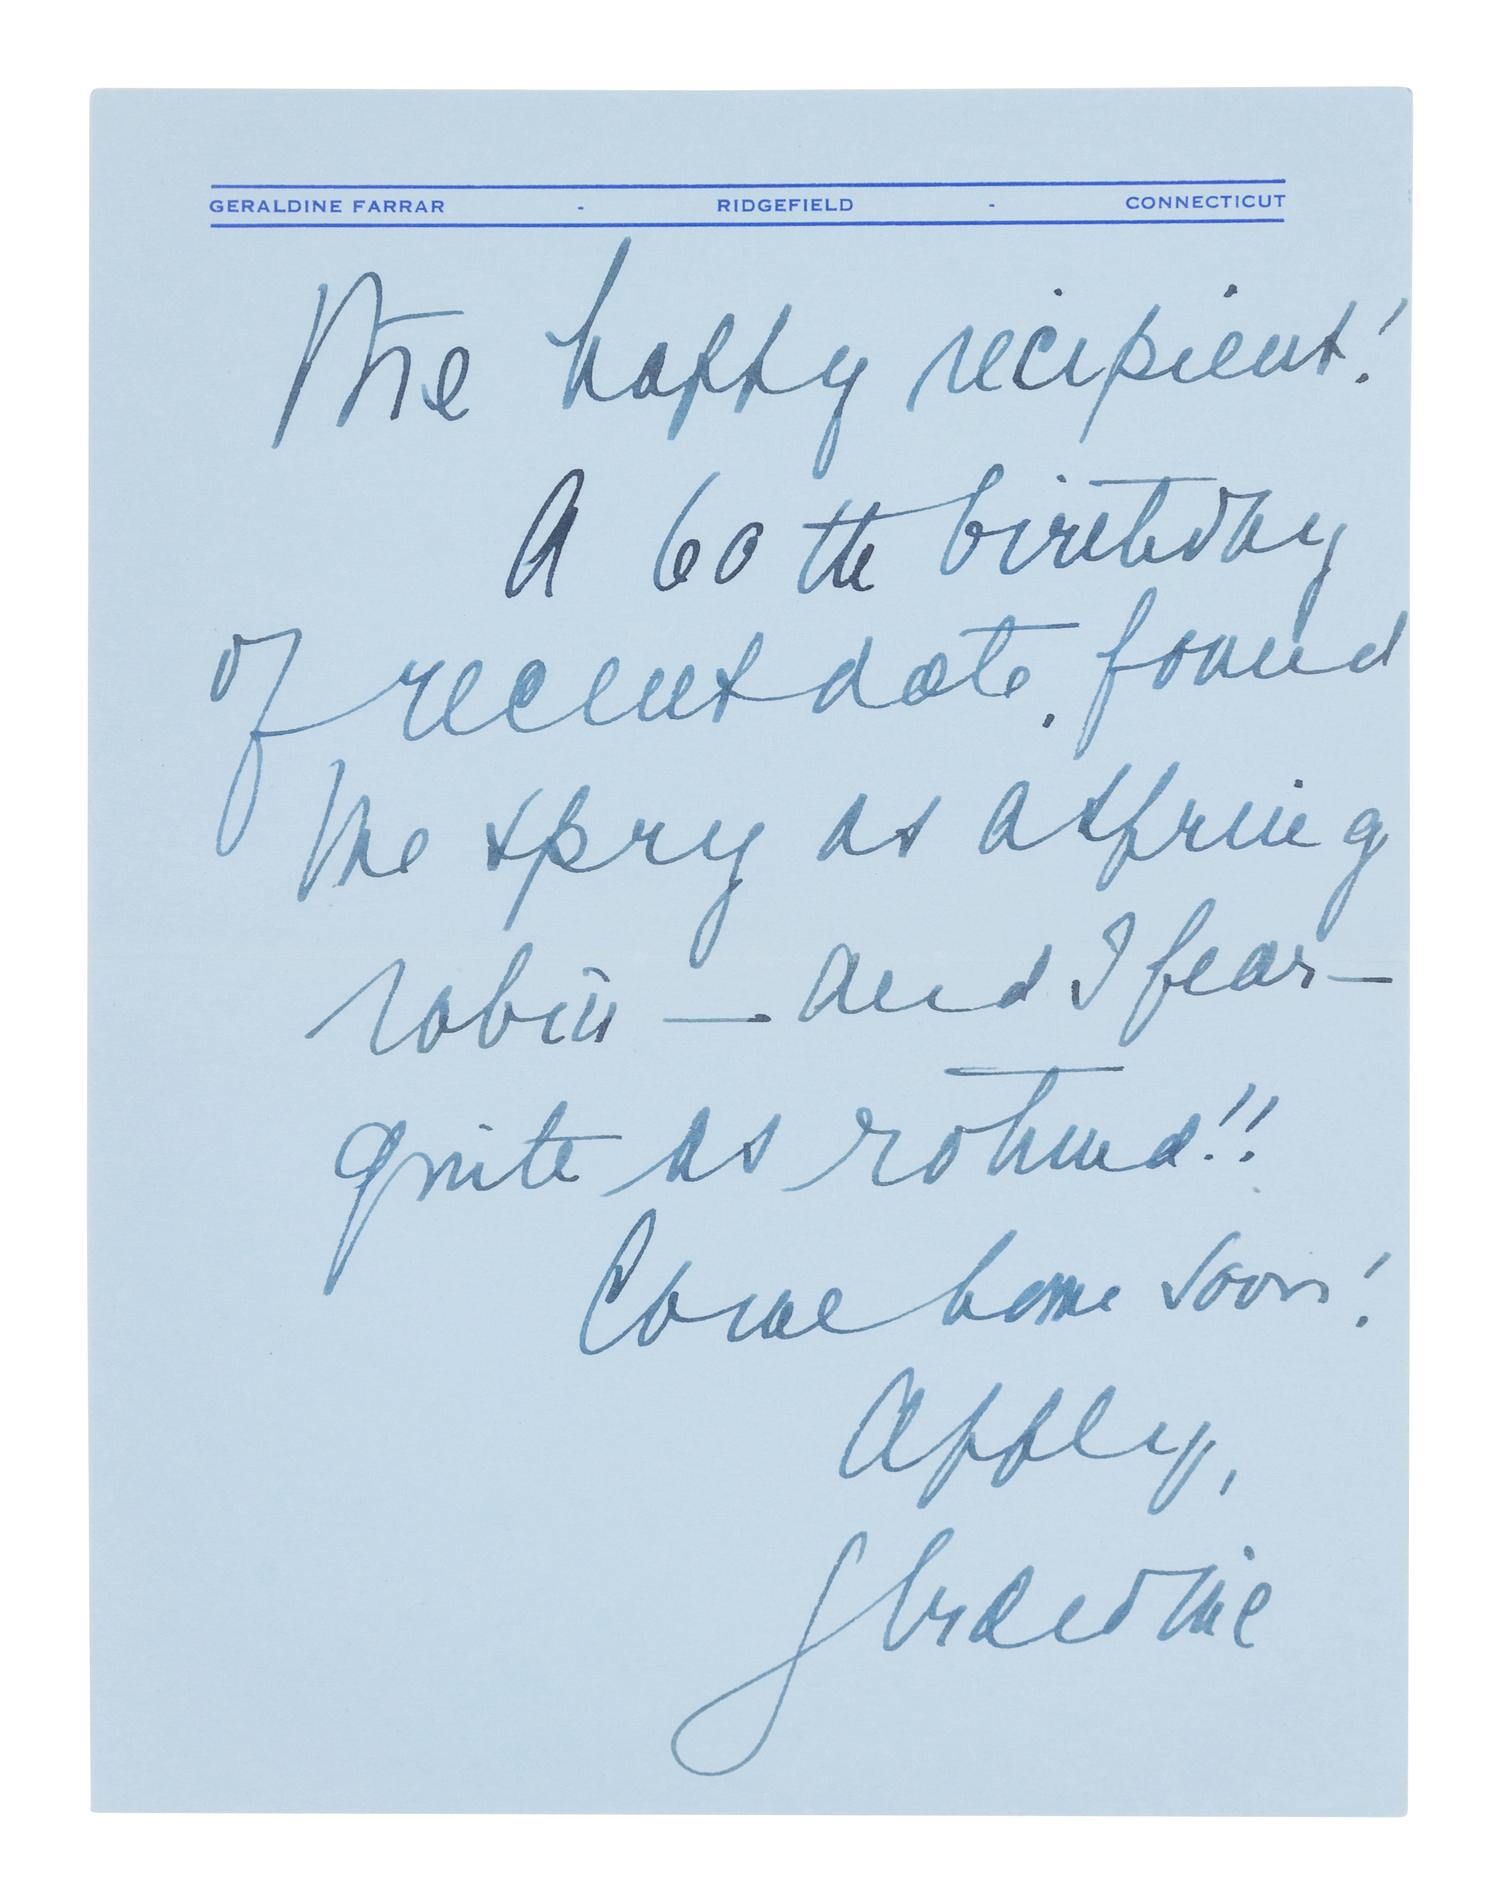 GERALDINE FARRAR - RIDGEFIELD - CONNECTICUT
the happy recipient!
A 60th birthday
of recent date, found
me spry as a spring
robin — and I fear —
quite as rotund!!
Come home soon!
Affly,
Geraldine